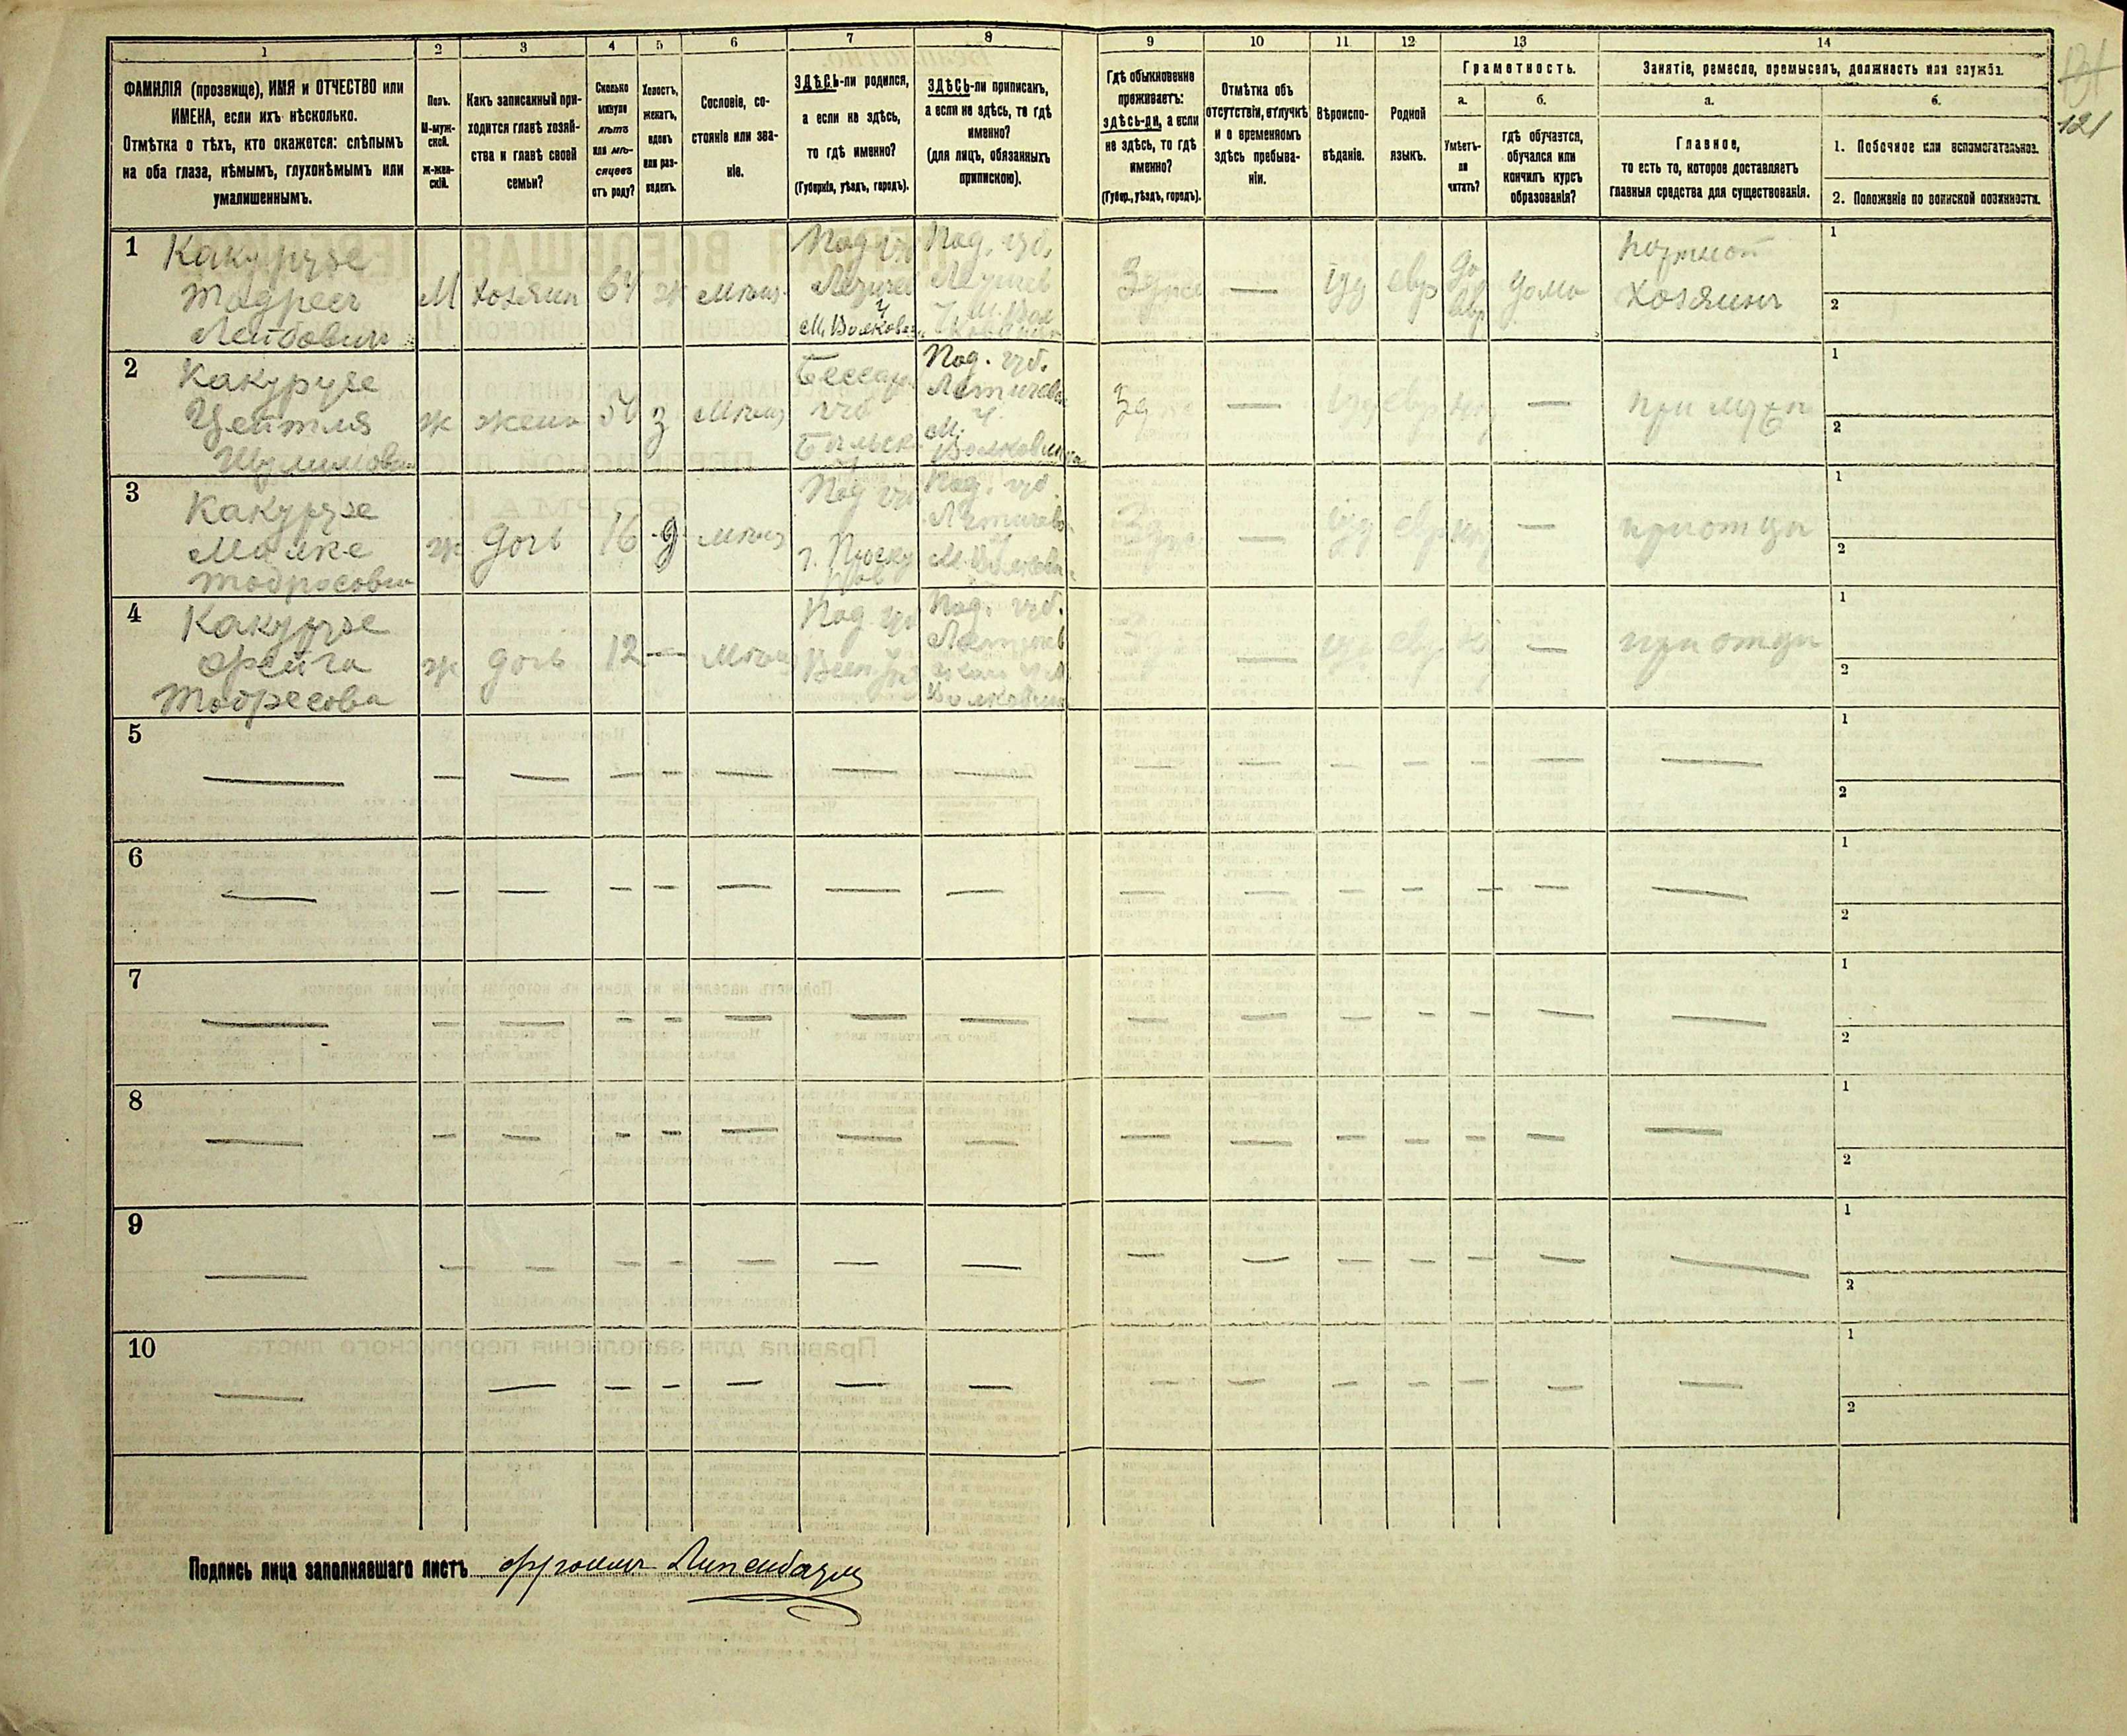 131
121
1 2 3 4 5 6 7 8 9 10 11 12 13 14
ФАМИЛІЯ (прозвище), ИМЯ и ОТЧЕСТВО или
ИМЕНА, если ихъ нѣсколько.
Отмѣтка о тѣхъ, кто окажется: слѣпымъ
на оба глаза, нѣмымъ, глухонѣмымъ или
умалишеннымъ.
Полъ.
М-муж-
ской.
Ж-жен-
скій.
Какъ записанный при-
ходится главѣ хозяй-
ства и главѣ своей
семьи?
Сколько
минуло
лѣтъ
или мѣ-
сяцевъ
отъ роду?
Холостъ,
женатъ,
вдовъ
или раз-
веденъ.
Сословіе, со-
стояніе или зва-
ніе.
ЗДѢСЬ-ли родился,
а если не здѣсь,
то гдѣ именно?
(Губернія, уѣздъ, городъ).
ЗДѢСЬ-ли приписанъ,
а если не здѣсь, то гдѣ
именно?
(для лицъ, обязанныхъ
припискою).
Гдѣ обыкновенно
проживаетъ:
здѣсь-ли, а если
не здѣсь, то гдѣ
именно?
(Губер., уѣздъ, городъ).
Отмѣтка объ
отсутствіи, отлучкѣ
и о временномъ
здѣсь пребыва-
ніи.
Вѣроиспо-
вѣданіе.
Родной
языкъ.
Грамотность.
а.
Умѣетъ-
ли
читать?
б.
гдѣ обучается,
обучался или
кончилъ курсъ
образованія?
Занятіе, ремесло, промыселъ, должность или служба.
а.
Главное,
то есть то, которое доставляетъ
главныя средства для существованія.
б.
1. Побочное или вспомогательное.
2. Положеніе по воинской повинности.
1
Какурузе
Тодресъ
Лейбовичъ
М
хозяин
64
ж
мѣщ.
Под. губ.
М. Волкове
Под. губ.
Здѣсь
—
іуд
евр
да
евр
дома
портной
хозяинъ
1
2
2
Какурузе
Цейтля
Шулимова
ж
жена
54
з
Мѣщ
Бессар.
губ
Бѣльск.
Под. губ.
Летичев
М.
Волковинцы
Зд
—
іуд
евр
нѣт
—
при мужѣ
1
2
3
Какурузе
Малке
Тодресова
ж
дочь
16
д
мѣщ
Под губ
г. Проску
ров
Под. губ
Летичев
Здѣсь
—
іуд
евр
нѣт
—
при отцѣ
1
2
4
Какурузе
Фрейга
Тодресова
ж
дочь
12
—
мѣщ
Под губ
Под. губ.
Летичев
Волковинц
—
іуд
евр
—
при отцѣ
1
2
5
1
2
6
1
2
7
1
2
8
1
2
9
1
2
10
1
2
Подпись лица заполнявшаго листъ